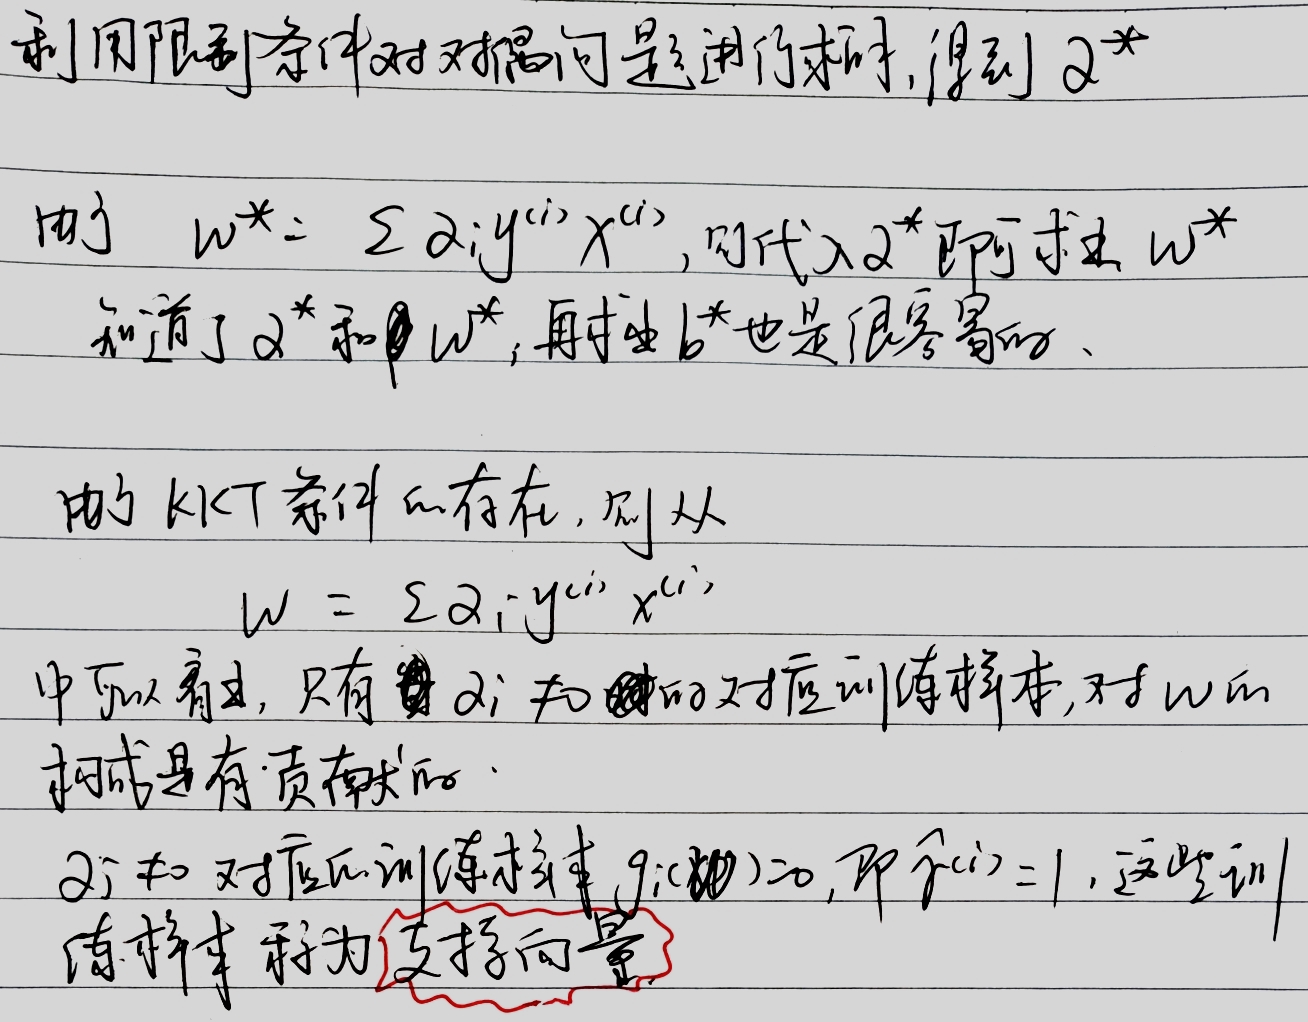 利用限制条件对对偶问题进行求解,得到 α*
由于 w* = Σ αᵢy⁽ⁱ⁾ x⁽ⁱ⁾, 则代入α* 即可求出 w*
知道了 α* 和 w*, 再求出 b* 也是很容易的、
由于 KKT 条件的存在, 则从
w = Σ αᵢ y⁽ⁱ⁾ x⁽ⁱ⁾
中可以看出, 只有 αᵢ ≠0 的对应训练样本, 对 w 的
构成是有贡献的.
αᵢ ≠0 对应的训练样本 gᵢ(w)=0, 即 γ̂⁽ⁱ⁾ = 1, 这些训
练样本 称为 支持向量